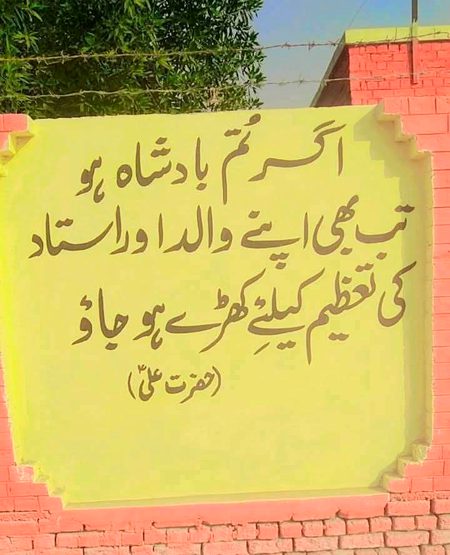 اگر تُم بادشاہ ہو
تب بھی اپنے والد اور استاد
کی تعظیم کیلئِے کھڑے ہو جاؤ
(حضرت علیؓ)